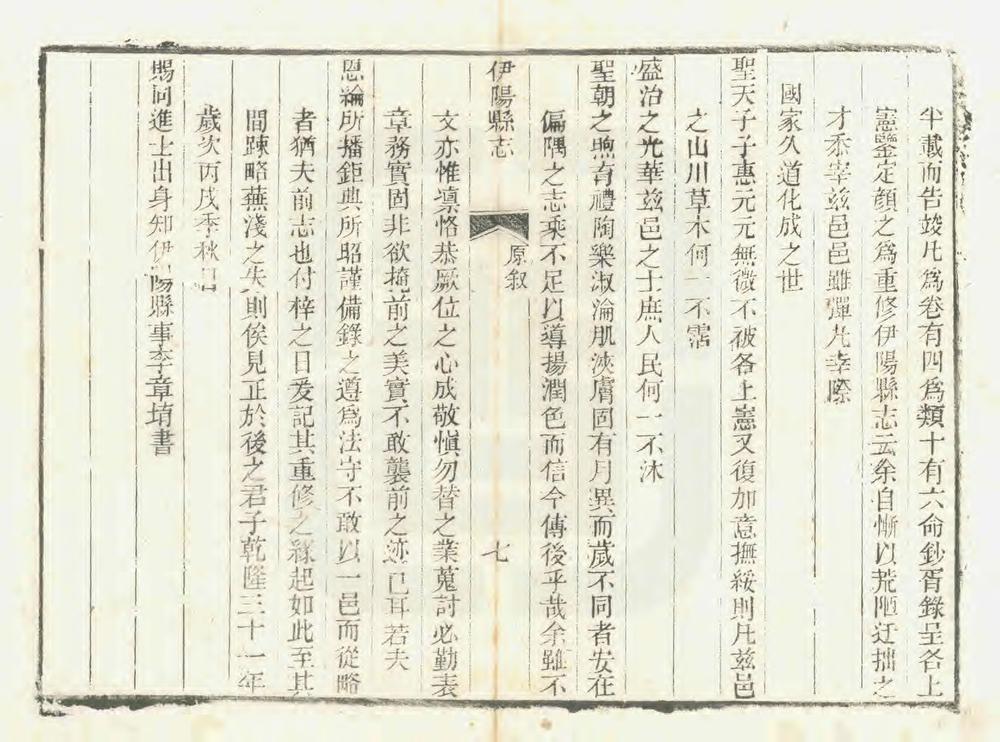 半載而告竣凡爲卷有四爲類十有六命鈔胥錄呈各上
憲鑒定顏之爲重修伊陽縣志云余自慚以荒陋迂拙之
才忝宰茲邑邑雖彈丸幸際
國家久道化成之世
聖天子子惠元元無微不被各上憲又復加意撫綏則凡茲邑
之山川草木何一不霑
盛治之光華茲邑之士庶人民何一不沐
聖朝之煦育禮陶樂淑淪肌浹膚固有月異而歲不同者安在
偏隅之志乘不足以導揚潤色而信今傳後乎哉余雖不
伊陽縣志
原叙
七
文亦惟凛恪恭厥位之心成敬愼勿替之業蒐討必勤表
章務實固非欲掩前之美實不敢襲前之迹已耳若夫
恩綸所播鉅典所昭謹備錄之遵爲法守不敢以一邑而從略
者猶夫前志也付梓之日爰記其重修之緣起如此至其
間踈略蕪淺之失則俟見正於後之君子乾隆三十一年
歲次丙戌季秋日
賜同進士出身知伊陽縣事李章堉書